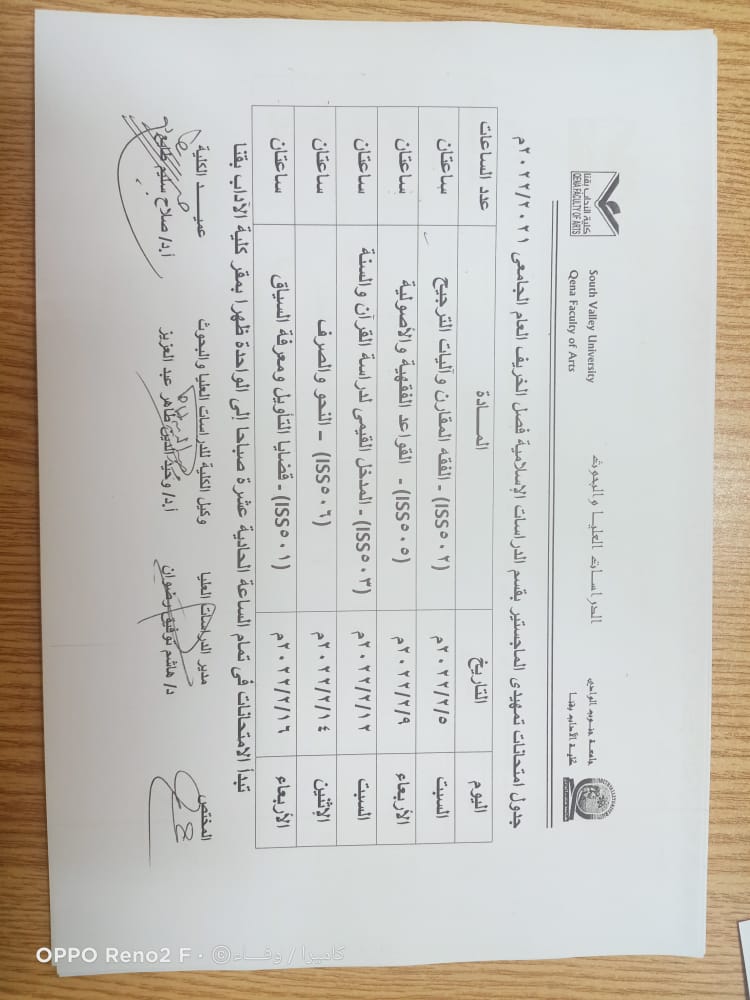 جامعة جنوب الوادي
كلية الآداب بقنا
الدراسات العليا والبحوث
South Valley University
Qena Faculty of Arts
كلية الآداب بقنا
QENA FACULTY OF ARTS
جدول امتحانات تمهيدى الماجستير بقسم الدراسات الإسلامية فصل الخريف العام الجامعى ٢٠٢٢/٢٠٢١م
اليوم التاريخ المــــادة عدد الساعات
السبت ٢٠٢٢/٢/٥م (ISS٥٠٢) - الفقه المقارن وآليات الترجيح ساعتان
الأربعاء ٢٠٢٢/٢/٩م (ISS٥٠٥) - القواعد الفقهية والأصولية ساعتان
السبت ٢٠٢٢/٢/١٢م (ISS٥٠٣) - المدخل القيمى لدراسة القرآن والسنة ساعتان
الإثنين ٢٠٢٢/٢/١٤م (ISS٥٠٦) - النحو والصرف ساعتان
الأربعاء ٢٠٢٢/٢/١٦م (ISS٥٠١) - قضايا التأويل ومعرفة السياق ساعتان
تبدأ الامتحانات فى تمام الساعة الحادية عشرة صباحا إلى الواحدة ظهرا بمقر كلية الآداب بقنا
المختص مدير الدراسات العليا وكيل الكلية للدراسات العليا والبحوث عميـــد الكلية
د/ هاشم توفيق رضوان أ.د/ وحيد الدين طاهر عبد العزيز أ.د/ صلاح سليم طايع
OPPO Reno2 F · ©كاميرا / وفــاء